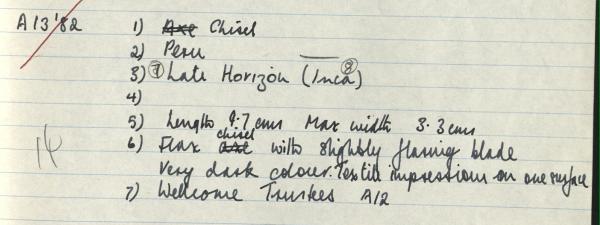 A13'82 1) Axe Chisel
2) Peru
3) ? Late Horizon (Inca)
4)
5) Length 9.7 cms Max width 3.3 cms
chisel
6) Flax axe with slightly flaring blade
Very dark colour. Textile impressions on one surface
7) Wellcome Trustees A12
14